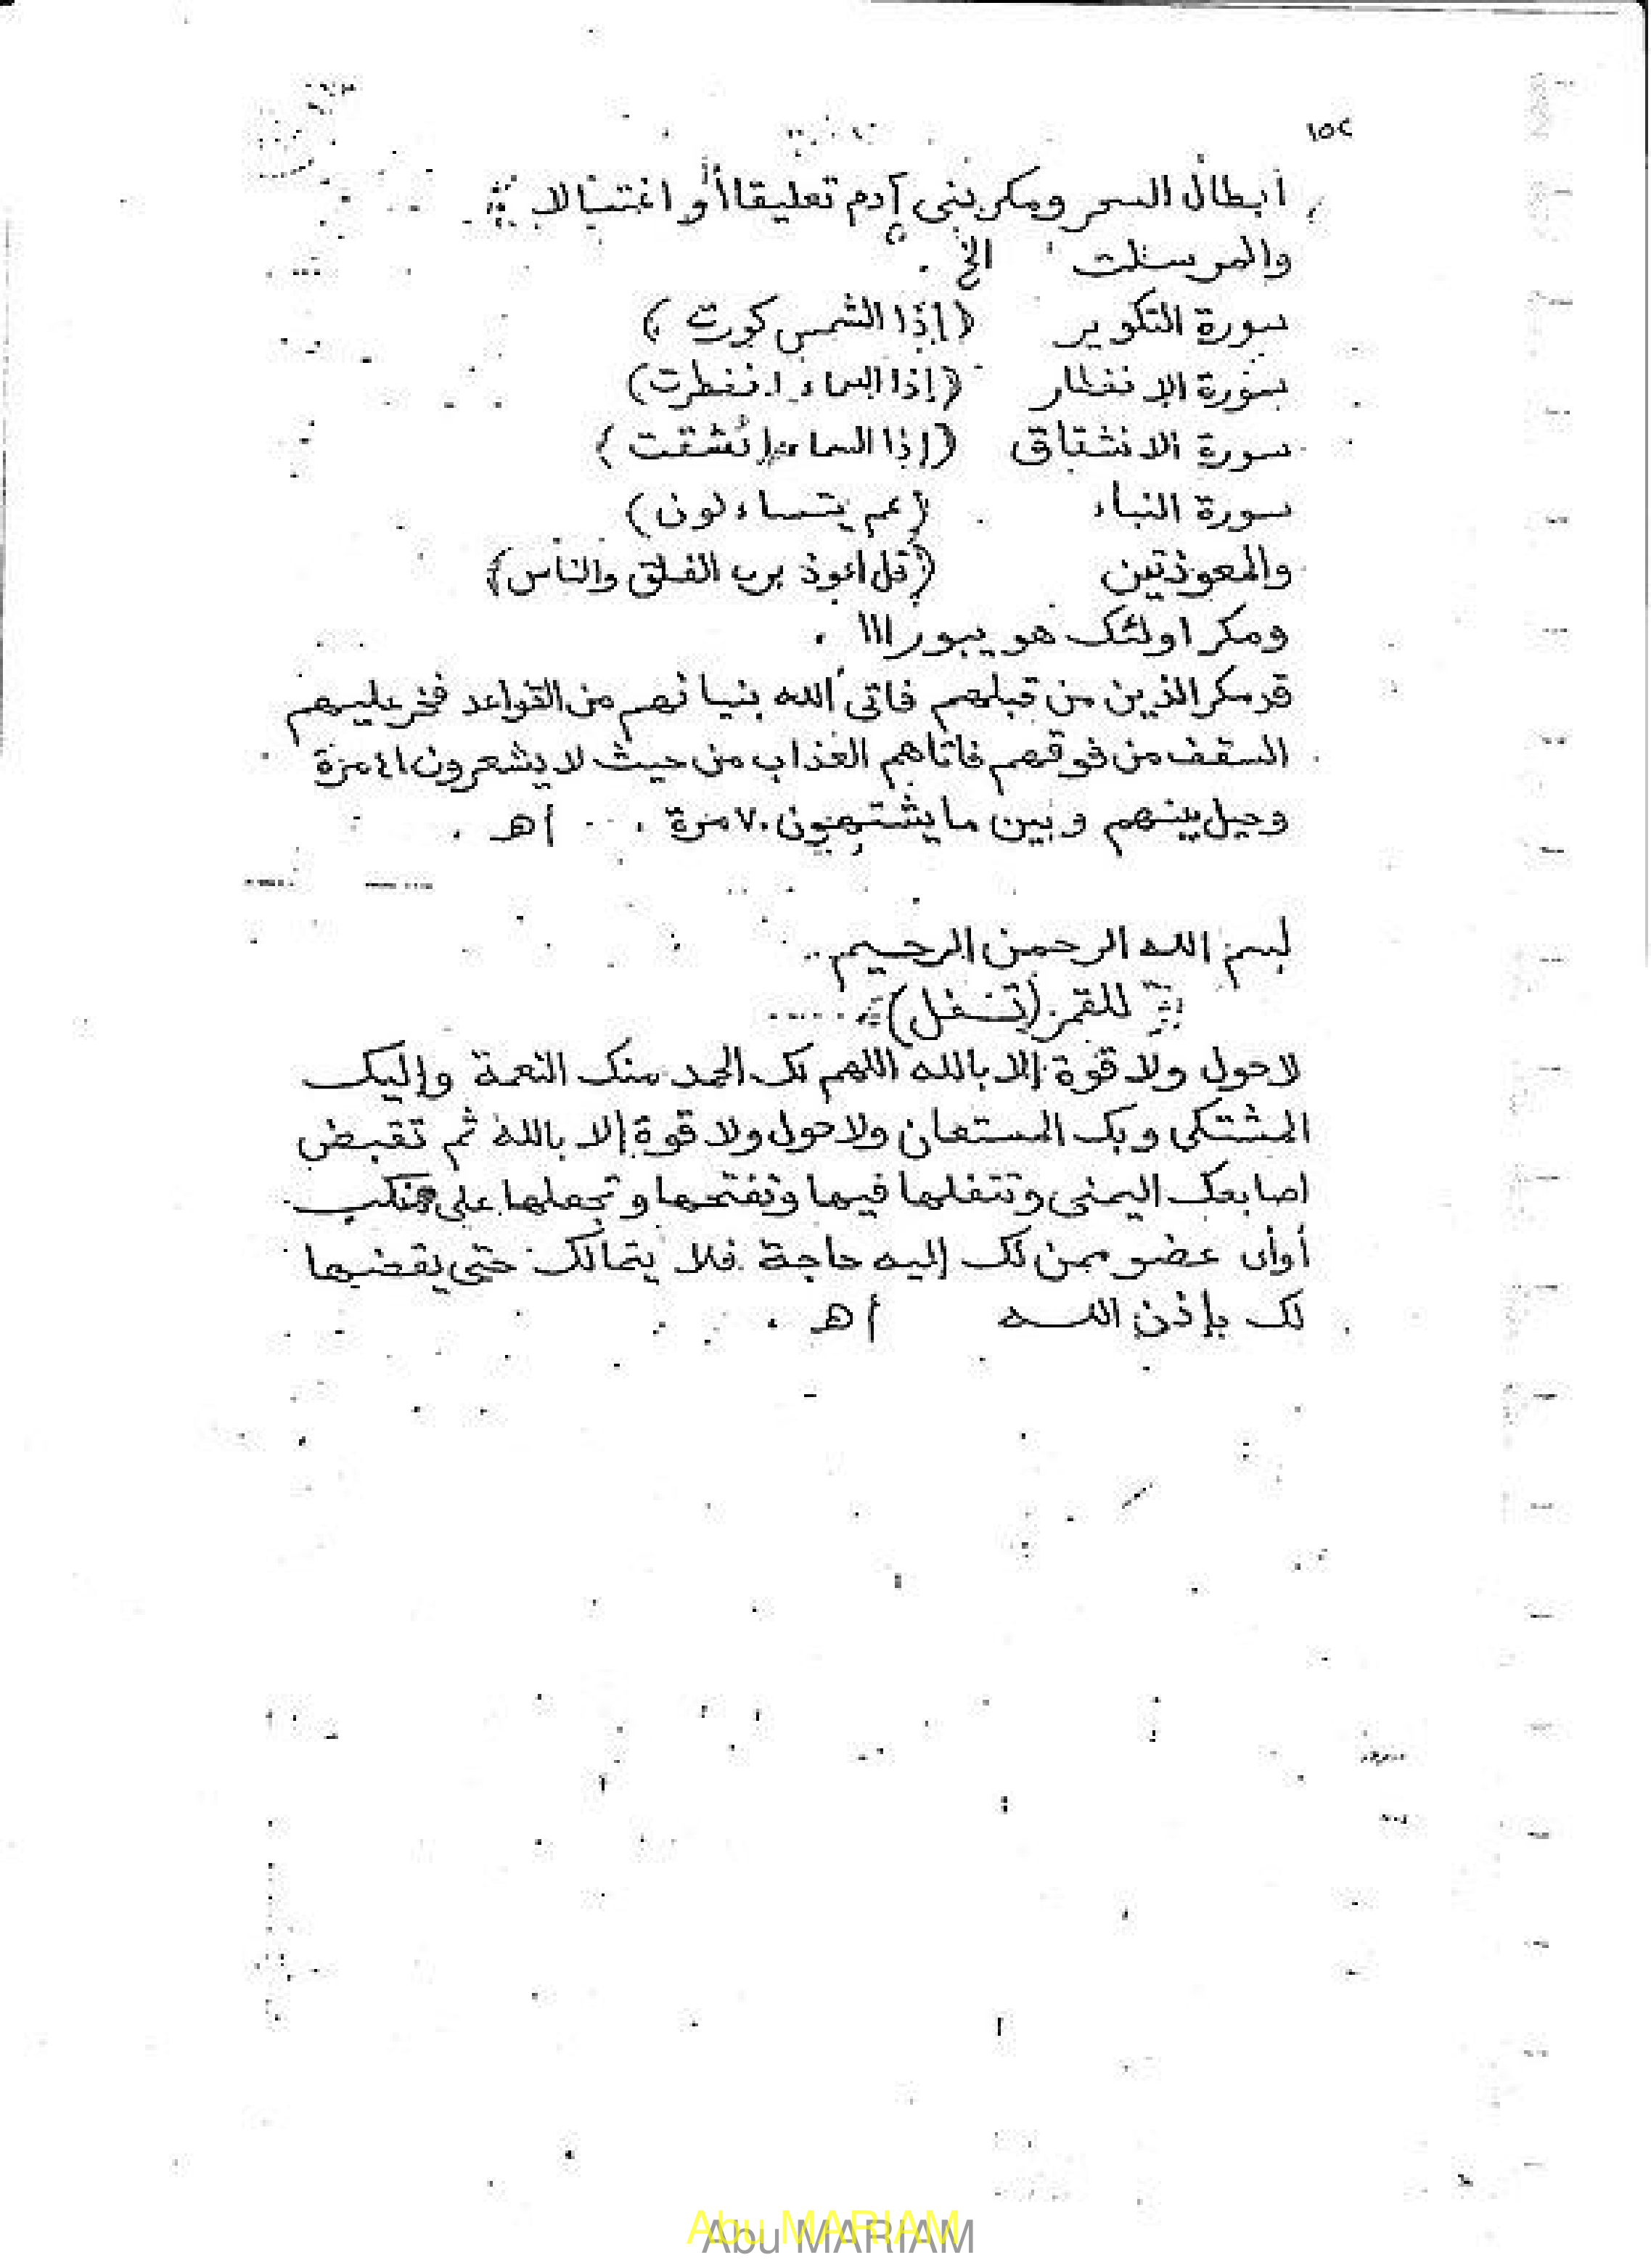 ١٥٢
أبطال السحر ومكر بني آدم تعليقا أو اغتسالا
والمرسلت الخ .
سورة التكوير (إذا الشمس كورت)
سورة الانفطار (إذا السماء انفطرت)
سورة الانشقاق (إذا السماء انشقت)
سورة النباء (عم يتساءلون)
والمعوذتين (قل اعوذ برب الفلق والناس)
ومكر اولئك هو يبور ااا .
قد مكر الذين من قبلهم فاتى الله بنيانهم من القواعد فخر عليهم
السقف من فوقهم فاتاهم العذاب من حيث لا يشعرون ٤١ مرة
وحيل بينهم وبين ما يشتهون ٧٠ مرة . أهـ .
بسم الله الرحمن الرحيم
للقمر (تنفل)
لا حول ولا قوة إلا بالله اللهم لك الحمد منك النعمة وإليك
المشتكى وبك المستعان ولا حول ولا قوة إلا بالله ثم تقبض
اصابعك اليمنى وتتفلها فيها وتفتحها وتجعلها على منكب
أو أى عضو ممن لك إليه حاجة فلا يتمالك حتى يقضيها
لك بإذن الله أهـ .
Abu MARIAM